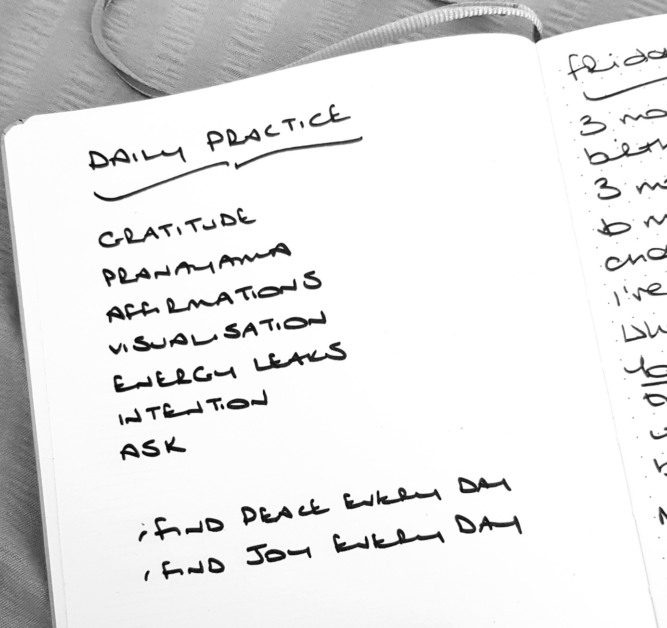 DAILY PRACTICE
GRATITUDE
PRANAYAMA
AFFIRMATIONS
VISUALISATION
ENERGY LEAKS
INTENTION
ASK
, FIND PEACE EVERY DAY
, FIND JOY EVERY DAY
3
3
I've